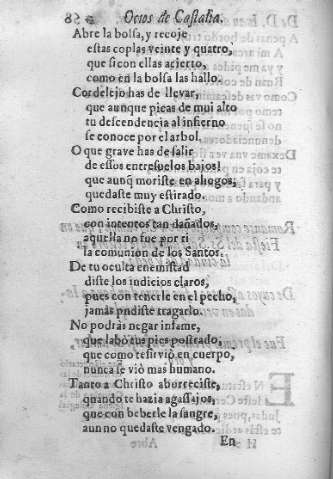 Ocios de Castalia.
Abre la bolsa, y recoje
estas coplas veinte y quatro,
que si con ellas acierto,
como en la bolsa las hallo.
Cordelejo has de llevar,
que aunque picas de mui alto
tu descendencia al infierno
se conoce por el arbol.
O que grave has de salir
de essos entresuelos bajos!
que aunq̃ moriste en ahogos,
quedaste muy estirado.
Como recibiste a Christo,
con intentos tan dañados,
aquella no fue por ti
la comunion de los Santos.
De tu oculta enemistad
diste los indicios claros,
pues con tenerle en el pecho,
jamàs pudiste tragarlo.
No podràs negar infame,
que labò tus pies postrado,
que como te sirviò en cuerpo,
nunca se viò mas humano.
Tanto a Christo aborreciste,
quando te hazia agassajos,
que con beberle la sangre,
aun no quedaste vengado.
En